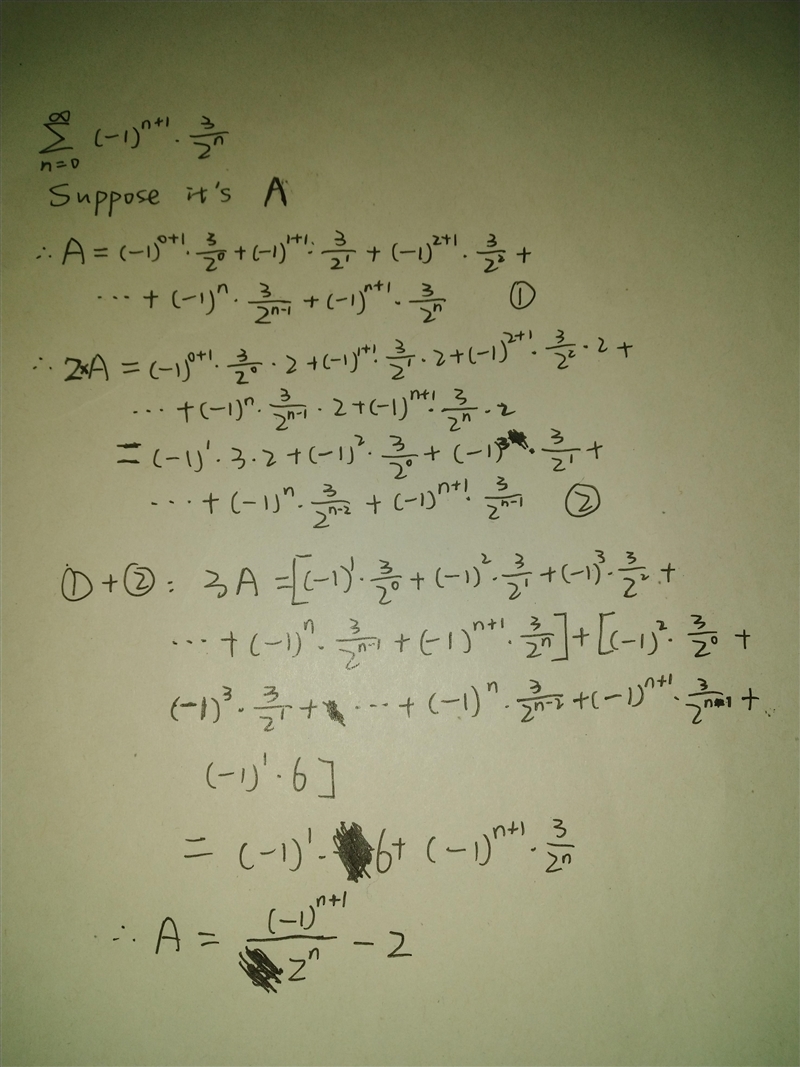 ∑_{n=0}^{∞} (-1)^{n+1} · 3/2^n
Suppose it's A
∴ A = (-1)^{0+1} · 3/2^0 + (-1)^{1+1} · 3/2^1 + (-1)^{2+1} · 3/2^2 +
··· + (-1)^n · 3/2^{n-1} + (-1)^{n+1} · 3/2^n ①
∴ 2×A = (-1)^{0+1} · 3/2^0 · 2 + (-1)^{1+1} · 3/2^1 · 2 + (-1)^{2+1} · 3/2^2 · 2 +
··· + (-1)^n · 3/2^{n-1} · 2 + (-1)^{n+1} · 3/2^n · 2
= (-1)^1 · 3 · 2 + (-1)^2 · 3/2^0 + (-1)^3 · 3/2^1 +
··· + (-1)^n · 3/2^{n-2} + (-1)^{n+1} · 3/2^{n-1} ②
① + ② : 3A = [(-1)^1 · 3/2^0 + (-1)^2 · 3/2^1 + (-1)^3 · 3/2^2 +
··· + (-1)^n · 3/2^{n-1} + (-1)^{n+1} · 3/2^n] + [(-1)^2 · 3/2^0 +
(-1)^3 · 3/2^1 + ··· + (-1)^n · 3/2^{n-2} + (-1)^{n+1} · 3/2^{n-1} +
(-1)^1 · 6]
= (-1)^1 · 6 + (-1)^{n+1} · 3/2^n
∴ A = (-1)^{n+1}/2^n - 2